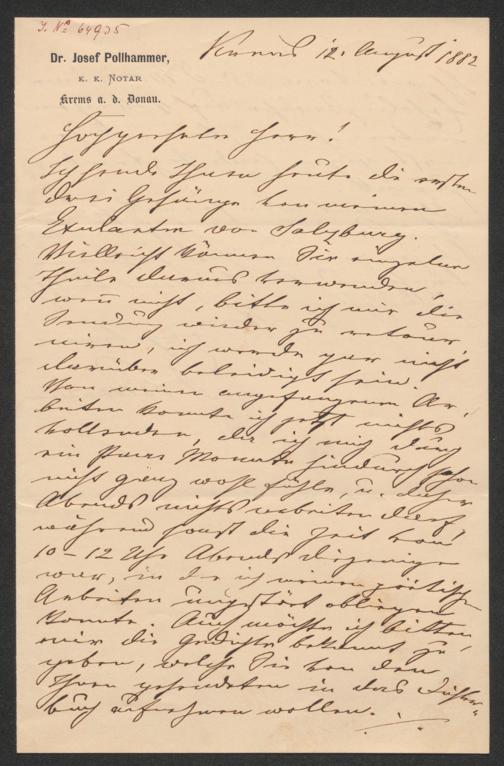 J. No 64935
Dr. Josef Pollhammer,
K. K. NOTAR
Krems a. d. Donau.
Krems 12. August 1882
Hochgeehrter Herr!
Ich sende Ihnen heute die ersten
drei Gesänge von meinen
Exulanten von Salzburg.
Vielleicht können Sie einzelne
Theile daraus verwenden,
wenn nicht, bitte ich mir die
Sendung wieder zu retour-
niren, ich werde gar nicht
darüber beleidigt sein.
Von meinen angefangenen Ar-
beiten konnte ich jetzt nichts
vollenden, da ich mich durch
ein Paar Monate hindurch schon
nicht ganz wohl fühle, u. daher
Abends nichts arbeiten darf,
während sonst die Zeit von
10-12 Uhr Abends diejenige
war, in der ich meinen poetischen
Arbeiten ungestört obliegen
konnte. Auch möchte ich bitten,
mir die Gedichte bekannt zu
geben, welche Sie von den
Ihnen gesendeten in das Dichter-
buch aufnehmen wollen.